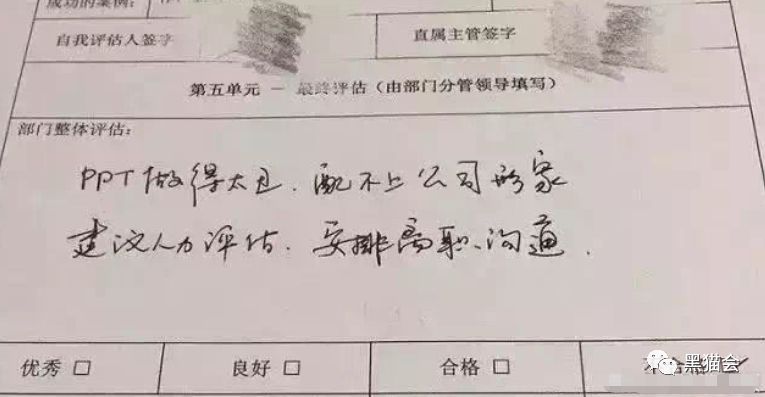 成功的案例:
自我评估人签字 直属主管签字
第五单元 － 最终评估（由部门分管领导填写）
部门整体评估:
PPT做得太丑、配不上公司形象
建议人力评估、安排离职沟通.
优秀 □ 良好 □ 合格 □ 不合格 ✓
黑猫会